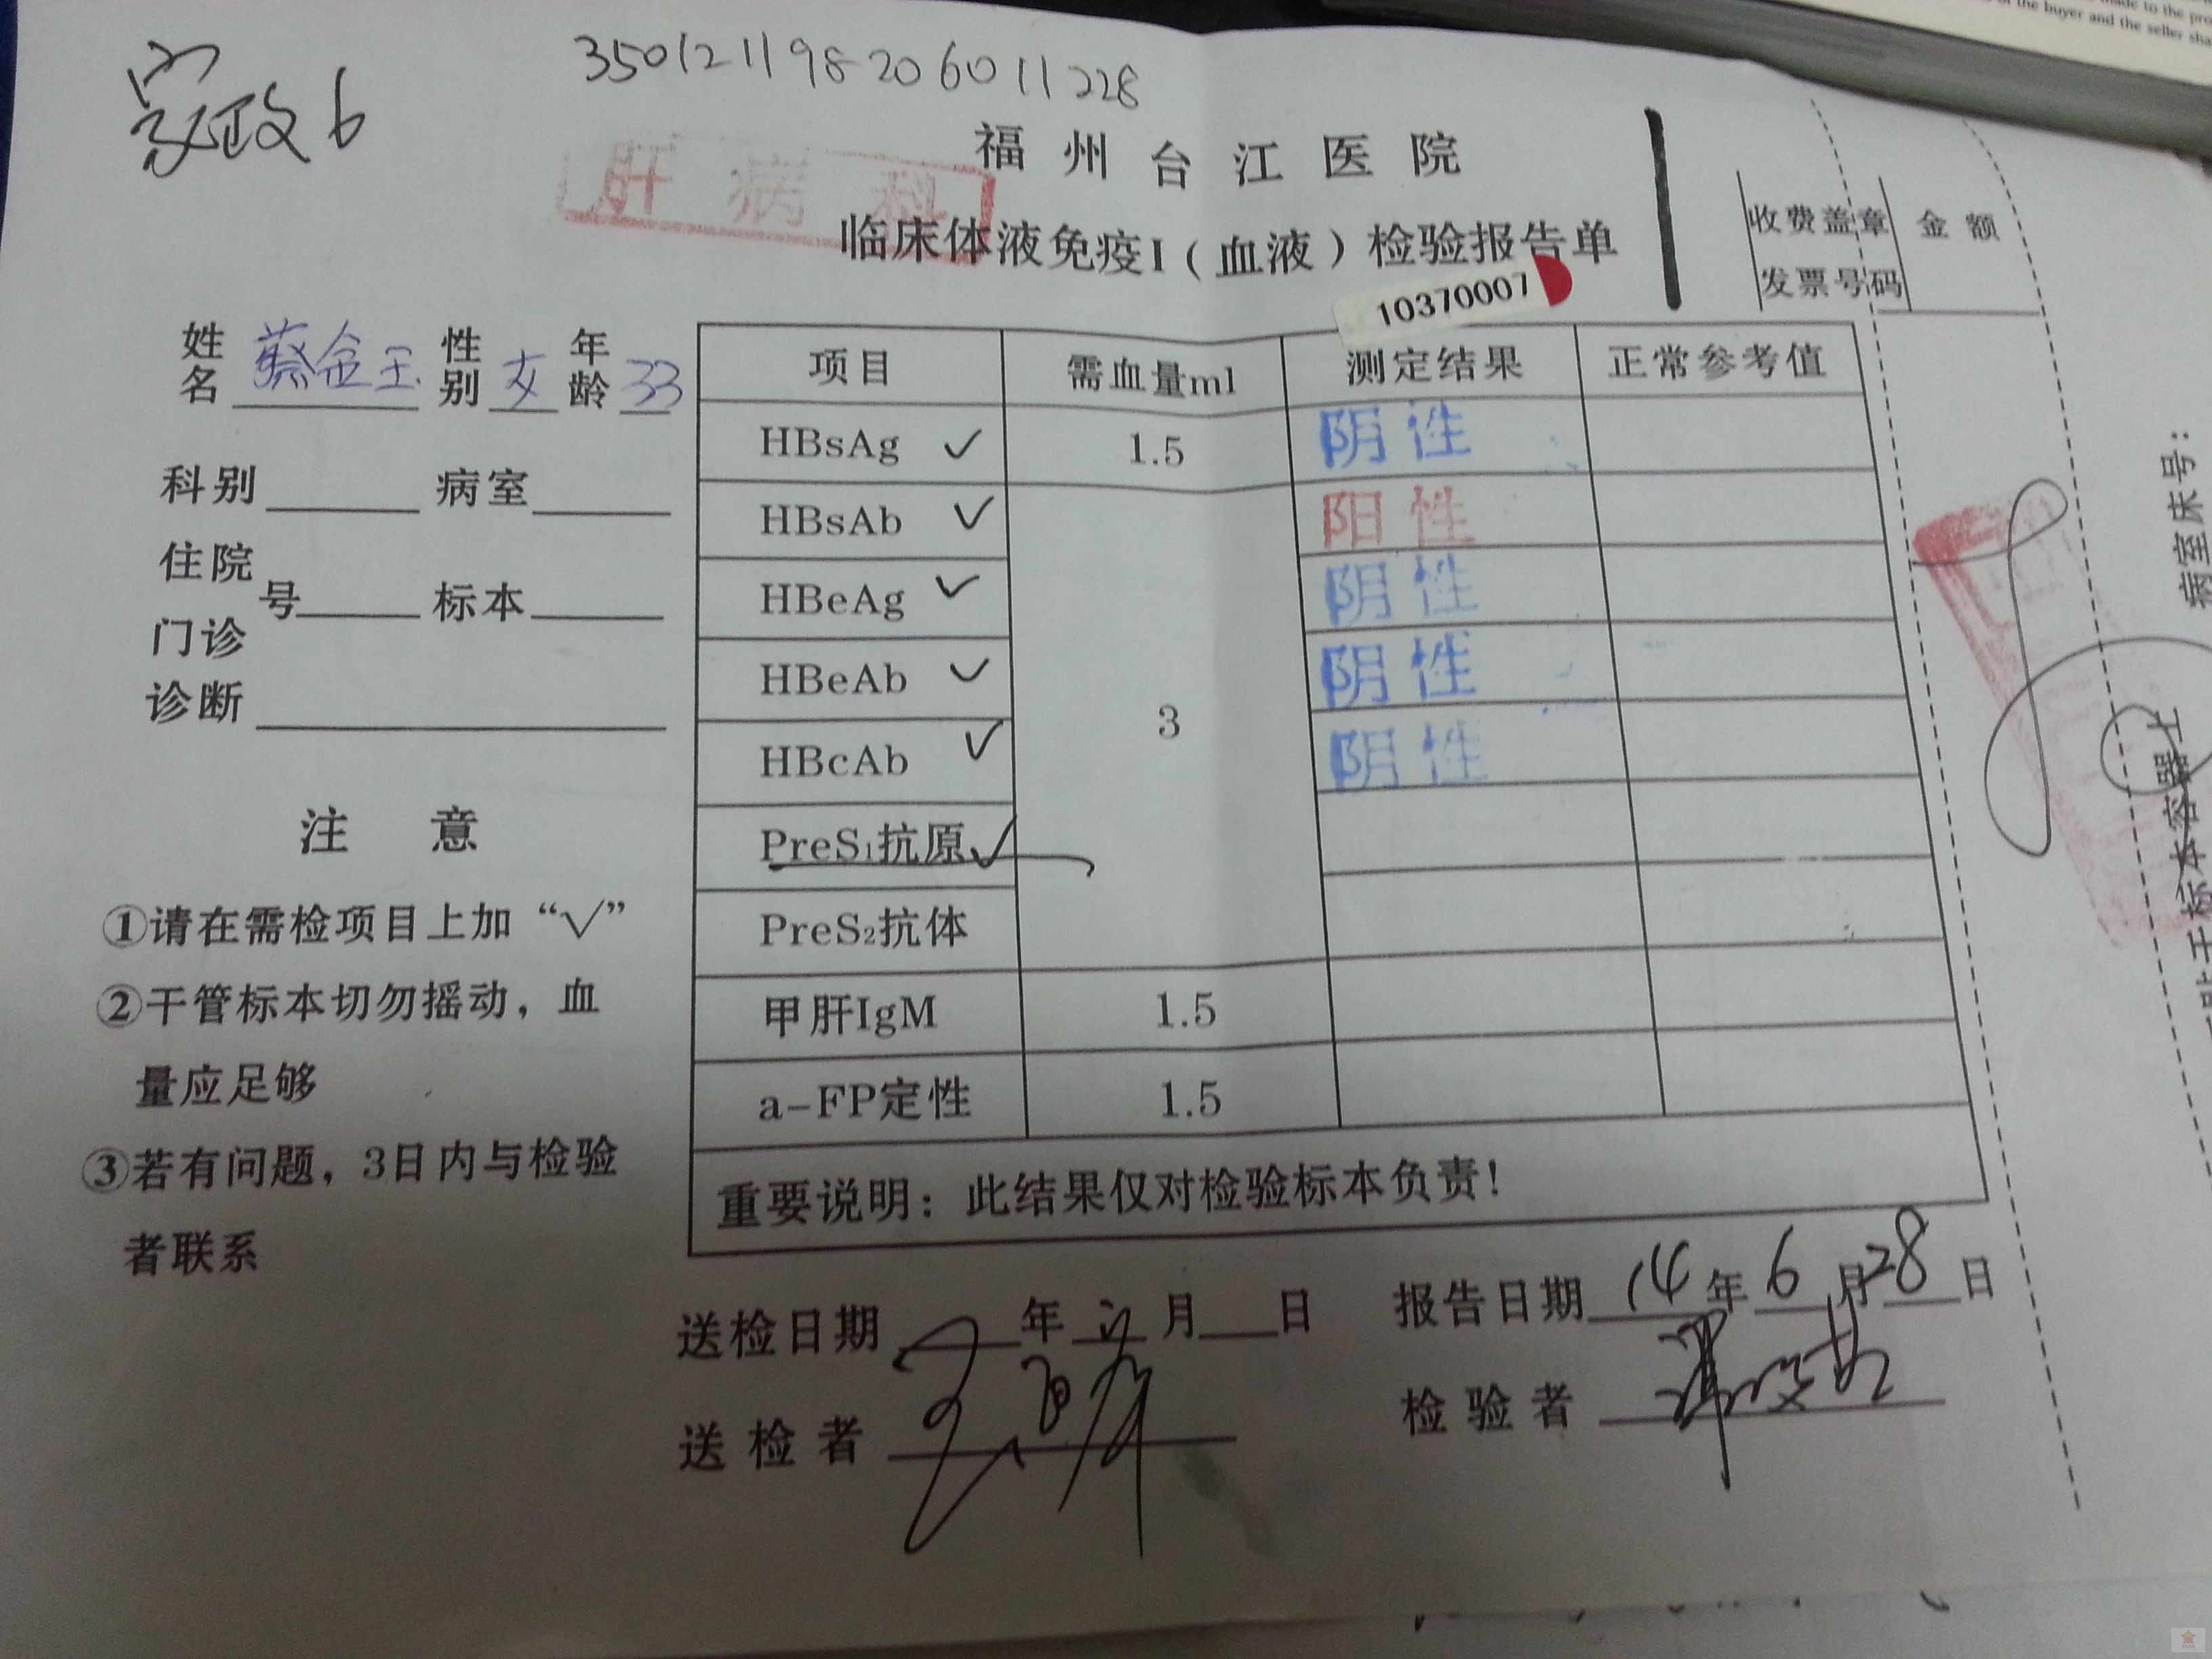 made to the pro
of the buyer and the seller sha
家政6
350121198206011228
福州台江医院
肝病科
临床体液免疫I（血液）检验报告单
10370007
收费盖章 金额
发票号码
姓名 蔡金玉 性别 女 年龄 33
科别 病室
住院
号 标本
门诊
诊断
注意
①请在需检项目上加“√”
②干管标本切勿摇动，血
量应足够
③若有问题，3日内与检验
者联系
项目 需血量ml 测定结果 正常参考值
HBsAg ✓ 1.5 阴性
HBsAb ✓ 阳性
HBeAg ✓ 阴性
HBeAb ✓ 3 阴性
HBcAb ✓ 阴性
PreS₁抗原 ✓
PreS₂抗体
甲肝IgM 1.5
a-FP定性 1.5
重要说明：此结果仅对检验标本负责！
送检日期 年 月 日 报告日期 14年6月28日
送检者 检验者
病室床号：
贴于标本容器上